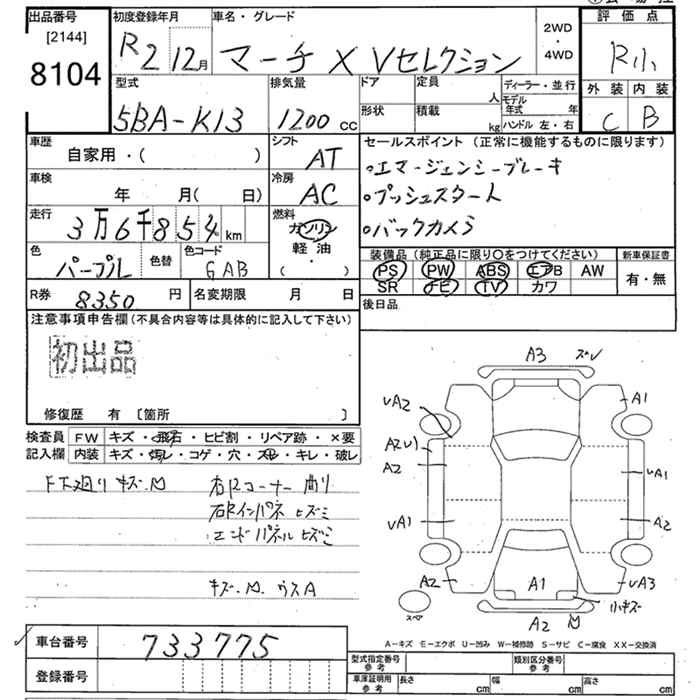 出品番号
[2144]
8104
初度登録年月
R2 12月
車名・グレード
マーチ X Vセレクション
2WD
・
4WD
評価点
R小
外装 内装
C B
型式
5BA-K13
排気量
1200 cc
ドア
形状
定員
人
積載
kg
ディーラー・並行
モデル年式 年
ハンドル 左・右
車歴
自家用・( )
シフト
AT
車検
年 月( 日)
冷房
AC
走行
3万6千854 km
燃料
ガソリン
軽油
( )
色
パープル
色替
色コード
GAB
R券
8350 円
名変期限 月 日
セールスポイント(正常に機能するものに限ります)
・エマージェンシーブレーキ
・プッシュスタート
・バックカメラ
装備品(純正品に限り○をつけてください)
PS PW ABS エアB AW
SR ナビ TV カワ
新車保証書
有・無
後日品
注意事項申告欄(不具合内容等は具体的に記入して下さい)
初出品
修復歴 有 [箇所 ]
検査員 FW キズ・飛石・ヒビ割・リペア跡・×要
記入欄 内装 キズ・汚レ・コゲ・穴・スレ・キレ・破レ
下廻りキズ.M
右Rコーナー曲り
右Rインパネヒズミ
エンドパネルヒズミ
キズ.M.ウスA
A3 ズレ
UA2
A1
A2U1
A2
UA1
UA1
A2
A2
A1
UA3
小キズ
スペア
A2 M
A-キズ E-エクボ U-凹み W-補修跡 S-サビ C-腐食 XX-交換済
車台番号 733775
登録番号
型式指定番号
参考
類別区分番号
参考
車庫証明用
参考
長さ cm
幅 cm
高さ cm